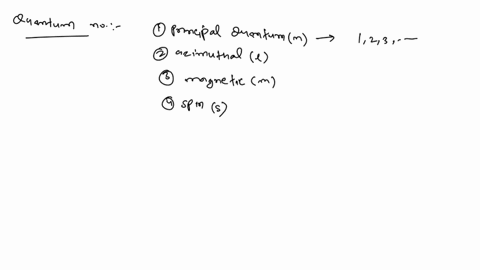 Quantum no.:- ① Principal Quantum (n) → 1, 2, 3, ...
② azimuthal (l)
③ magnetic (m)
④ spin (s)